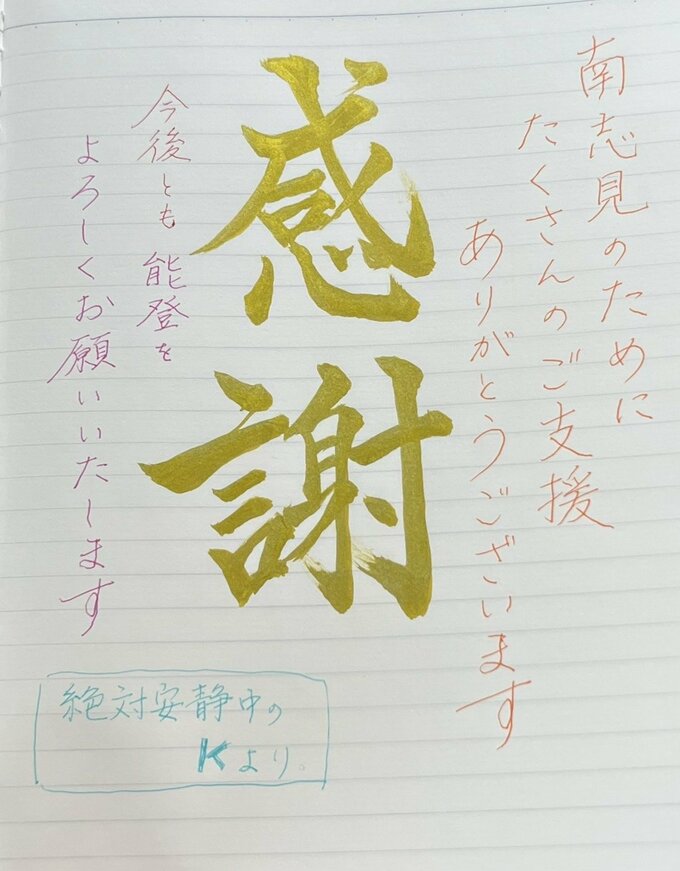 南志見のために
たくさんのご支援
ありがとうございます
感謝
今後とも能登を
よろしくお願いいたします
絶対安静中の
Kより。